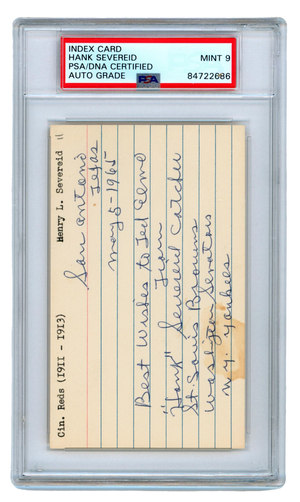 INDEX CARD
HANK SEVEREID
PSA/DNA CERTIFIED
AUTO GRADE
MINT 9
PSA
84722686
Cin. Reds (1911 - 1913) Henry L. Severeid
San Antonio
Texas
May 5-1965
Best Wishes to Ted Elmo
From
"Hank" Severeid Catcher
St. Louis Browns
Washington Senators
N.Y. Yankees